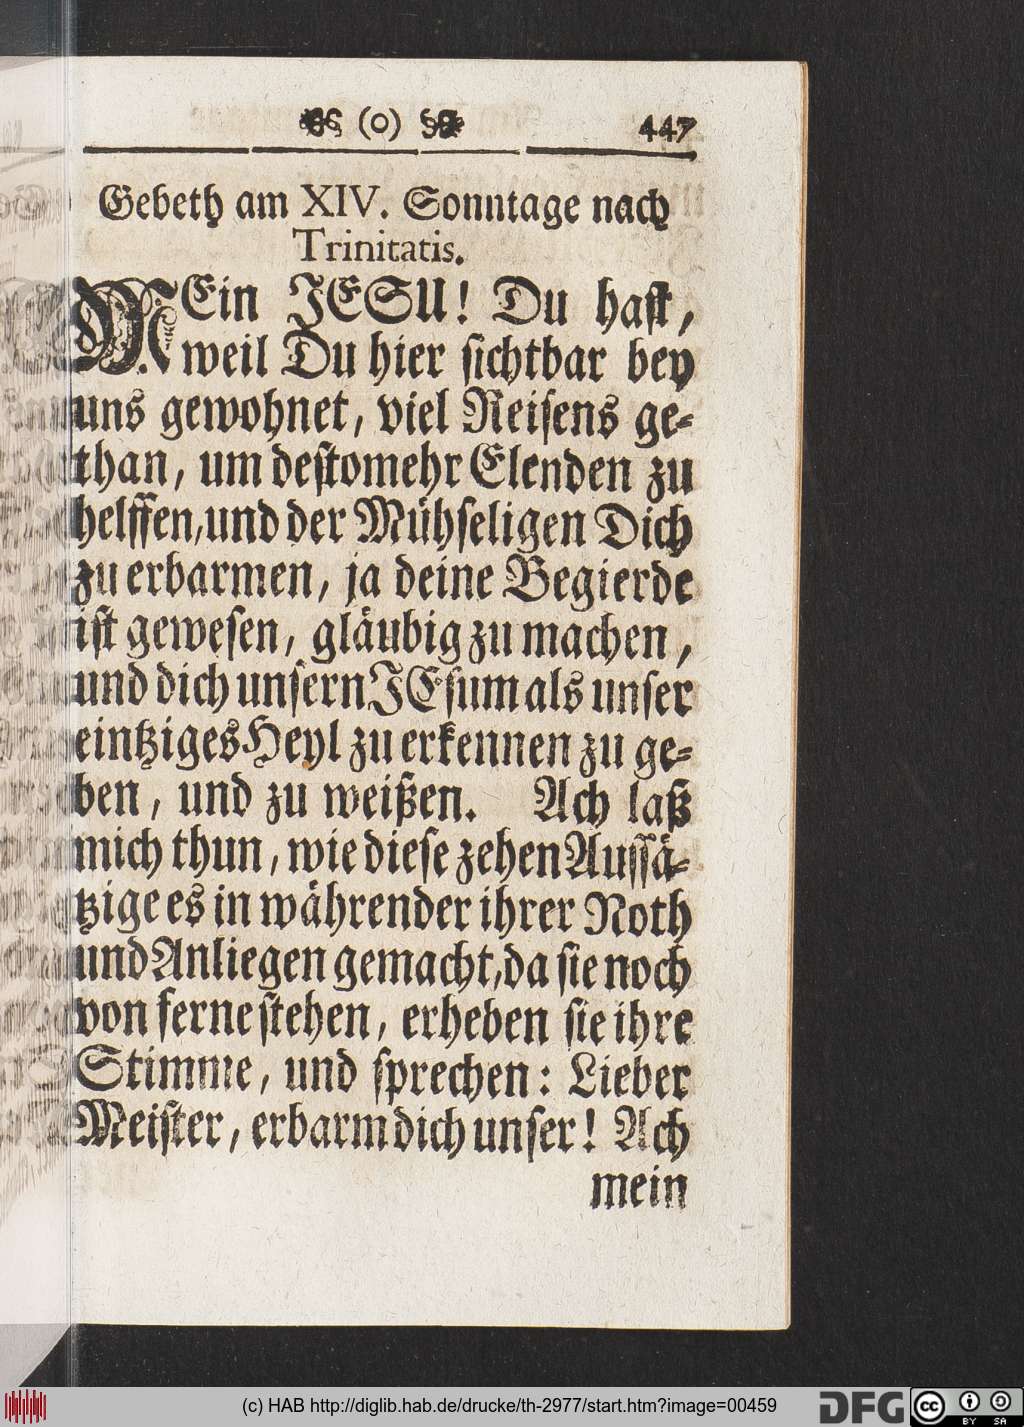 (o) 447
Gebeth am XIV. Sonntage nach
Trinitatis.
MEin JESU! Du hast,
weil Du hier sichtbar bey
uns gewohnet, viel Reisens ge-
than, um destomehr Elenden zu
helffen, und der Mühseligen Dich
zu erbarmen, ja deine Begierde
ist gewesen, gläubig zu machen,
und dich unsern JEsum als unser
eintziges Heyl zu erkennen zu ge-
ben, und zu weißen. Ach laß
mich thun, wie diese zehen Aussä-
tzige es in währender ihrer Noth
und Anliegen gemacht, da sie noch
von ferne stehen, erheben sie ihre
Stimme, und sprechen: Lieber
Meister, erbarm dich unser! Ach
mein
(c) HAB http://diglib.hab.de/drucke/th-2977/start.htm?image=00459
DFG
cc BY SA